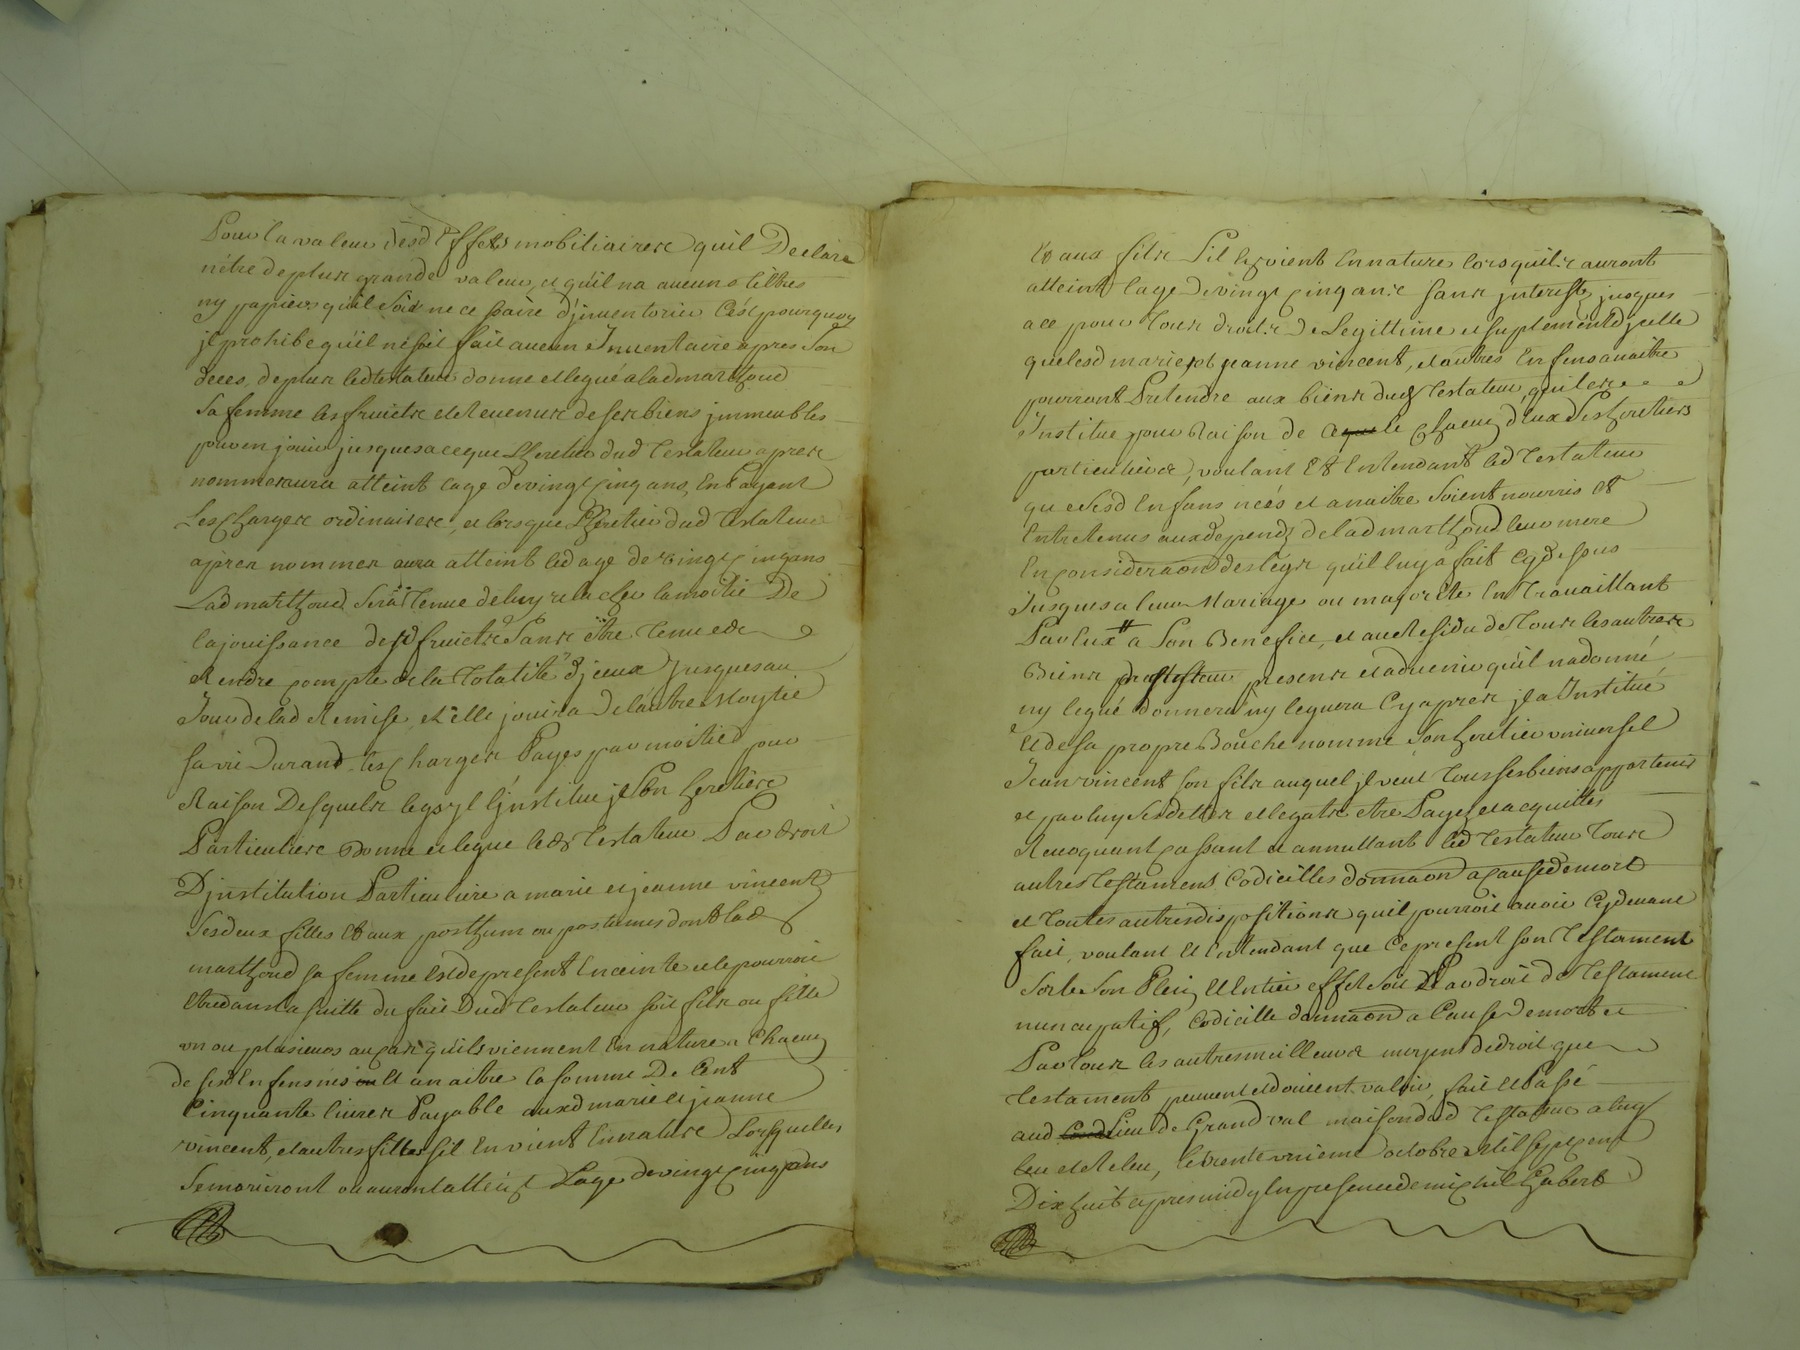 Pour la valeur desd Effets mobiliaires quil Declare
nêtre de plus grande valeur, et quil na aucuns tiltres
ny papiers quil soit necessaire djnventorier C'est pourquoy
jl prohibe quil ne soit fait aucun Inventaire apres son
deces, de plus led testateur donne et legué a lad marthoud
sa femme les fruicts et Revenus de ses biens jmmeubles
pour en jouir jusques a ce que Lheretier dud Testateur apres
nommé aura atteint lage de vingt cinq ans, En Payant
Les Charges ordinaires, et lors que Lheretier dud Testateur
apres nommer aura atteint led age de vingt cinq ans
Lad marthoud Sera Tenue de luy relacher la moitié De
la jouissance desd fruicts Sans être Tenue de
Rendre compte de la Totalité djceux Jusques au
Jour de lad Remise, et Elle jouira De lautre Moytié
sa vie Durand les charges Payes par moitié pour
Raison Desquels legs jl Linstitue Son heretiere
Particuliere Donne et legue led Testateur Par droit
Djnstitution Particuliere a marie et jeanne vincent
Ses deux filles Et aux posthum ou postumes dont lad
marthoud sa femme Est de present Enceinte et le pourroit
Etre dans la suitte du fait Dud Testateur soit fils ou fille
un ou plusieurs au cas quils viennent En nature a Chacun
de sesd Enfens nés Et a naitre la somme De Cent
Cinquante livres Payable auxd marie et jeanne
vincent, et autres filles sil En vient En nature Lorsquelles
Se mariront ou auront atteint Lage de vingt cinq ans
Et aux fils Sil En vient En nature lors quils auront
atteint lage De vingt cinq ans sans jnterests jusques
a ce pour Tous droits De Legittime et suplement djcelle
que lesd marie et jeanne vincent, et autres Enfens a naitre
pourront Pretendre aux biens dud Testateur, quil les
Institue pour Raison de ce chacun deux Ses heretiers
particuliers, voulant Et Entendant led Testateur
que sesd Enfans néés et a naitre Soient nourris et
Entretenus aux depends de lad marthoud leur mere
En consideraon des legs quil luy a fait Cy dessus
Jusques a leur Mariage ou majorité En Travaillant
Par Eux a Son Benefice, et au Residu de Tous les autres
Biens presens et advenir quil na donné
ny legué donnera ny leguera Cy apres jl a Institué
Et de sa propre Bouche nommé Son heretier universel
Jean vincent son fils auquel jl veut Tous ses biens appartenir
et par luy Ses dettes et legats etre Payez et acquittes
Revoquant Cassant et annullant led Testateur Tous
autres Testamens Codicilles donnaon a cause de mort
et Toutes autres dispositions quil pourroit avoir Cy devant
fait, voulant Et Entendant que Ce present son Testament
Sorte Son Plein Et Entier effet Soit Par droit de Testament
nuncupatif, Codicille donnaon a Cause De mort et
Par Tous les autres meilleurs moyens de droit que
Testament peuvent et doivent valoir, fait et Passé
aud Lieu de Grand val maison dud Testateur a luy
leu et Releu, le trente unieme octobre Mil sept cent
Dix huit apres midy En presence de michel Gabert